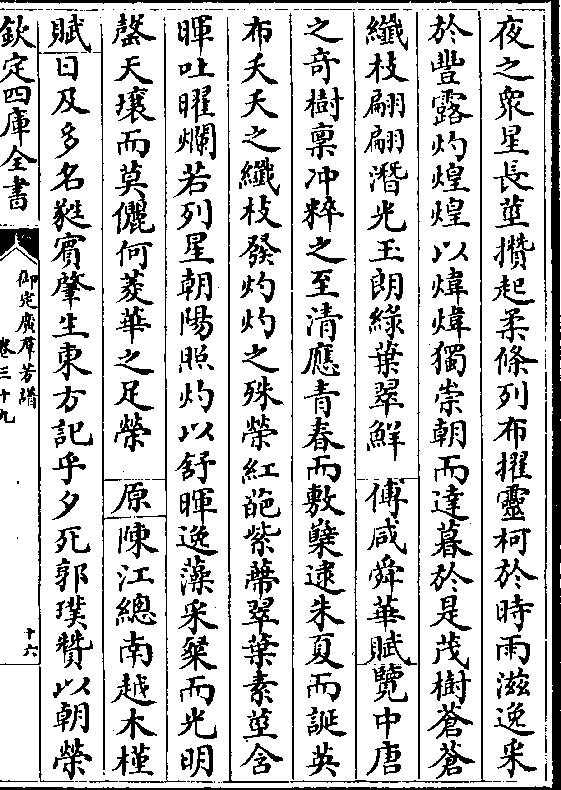 夜之衆星長莖攢起柔條列布擢靈柯於時雨滋逸采
於豐露灼煌煌以煒煒獨崇朝而達暮於是茂樹蒼蒼
纖枝翩翩潛光玉朗綠葉翠鮮 傅咸舜華賦覽中唐
之奇樹稟冲粹之至清應青春而敷蘖逮朱夏而誕英
布夭夭之纖枝發灼灼之殊榮紅葩紫蔕翠葉素莖含
暉吐曜爛若列星朝陽照灼以舒暉逸藻采粲而光明
罄天壤而莫儷何菱華之足榮 原陳江總南越木槿
賦日及多名蕤賓肇生東方記乎夕死郭璞贊以朝榮
欽定四庫全書
御定廣羣芳譜
卷三十九
十六